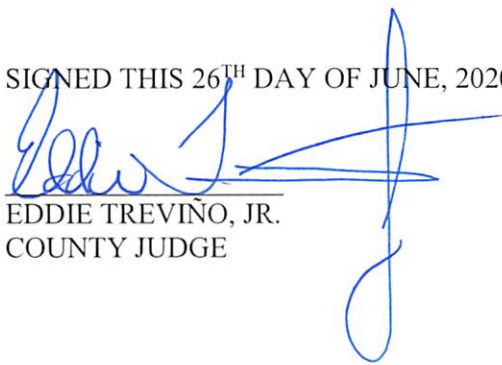 SIGNED THIS 26TH DAY OF JUNE, 2020
Eddie T
EDDIE TREVIÑO, JR.
COUNTY JUDGE